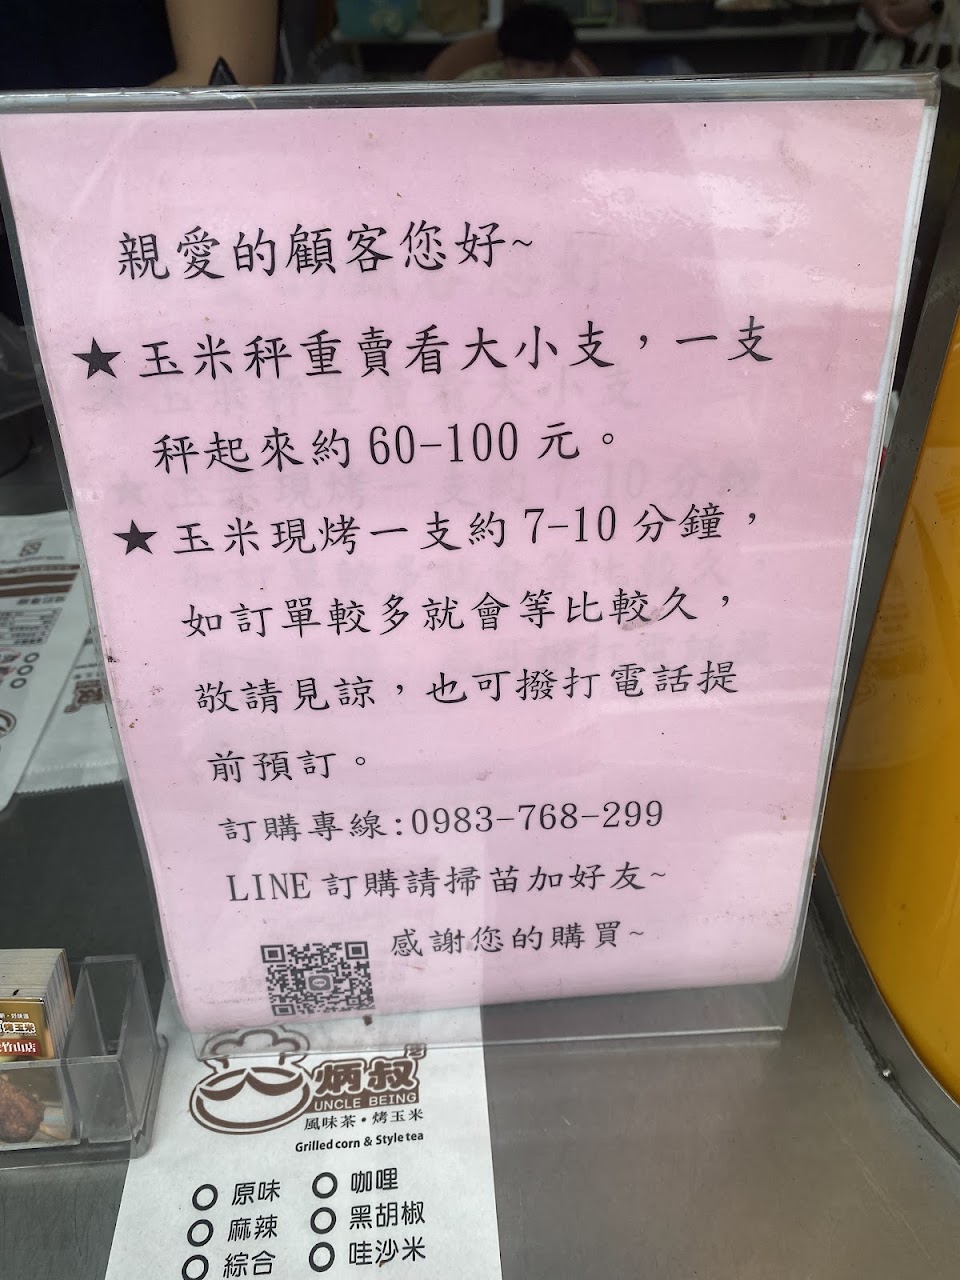 親愛的顧客您好~
★玉米秤重賣看大小支,一支
秤起來約60-100元。
★玉米現烤一支約7-10分鐘,
如訂單較多就會等比較久,
敬請見諒,也可撥打電話提
前預訂。
訂購專線:0983-768-299
LINE訂購請掃苗加好友~
感謝您的購買~
炳叔
UNCLE BEING
風味茶・烤玉米
Grilled corn & Style tea
原味 咖哩
麻辣 黑胡椒
綜合 哇沙米
竹山店